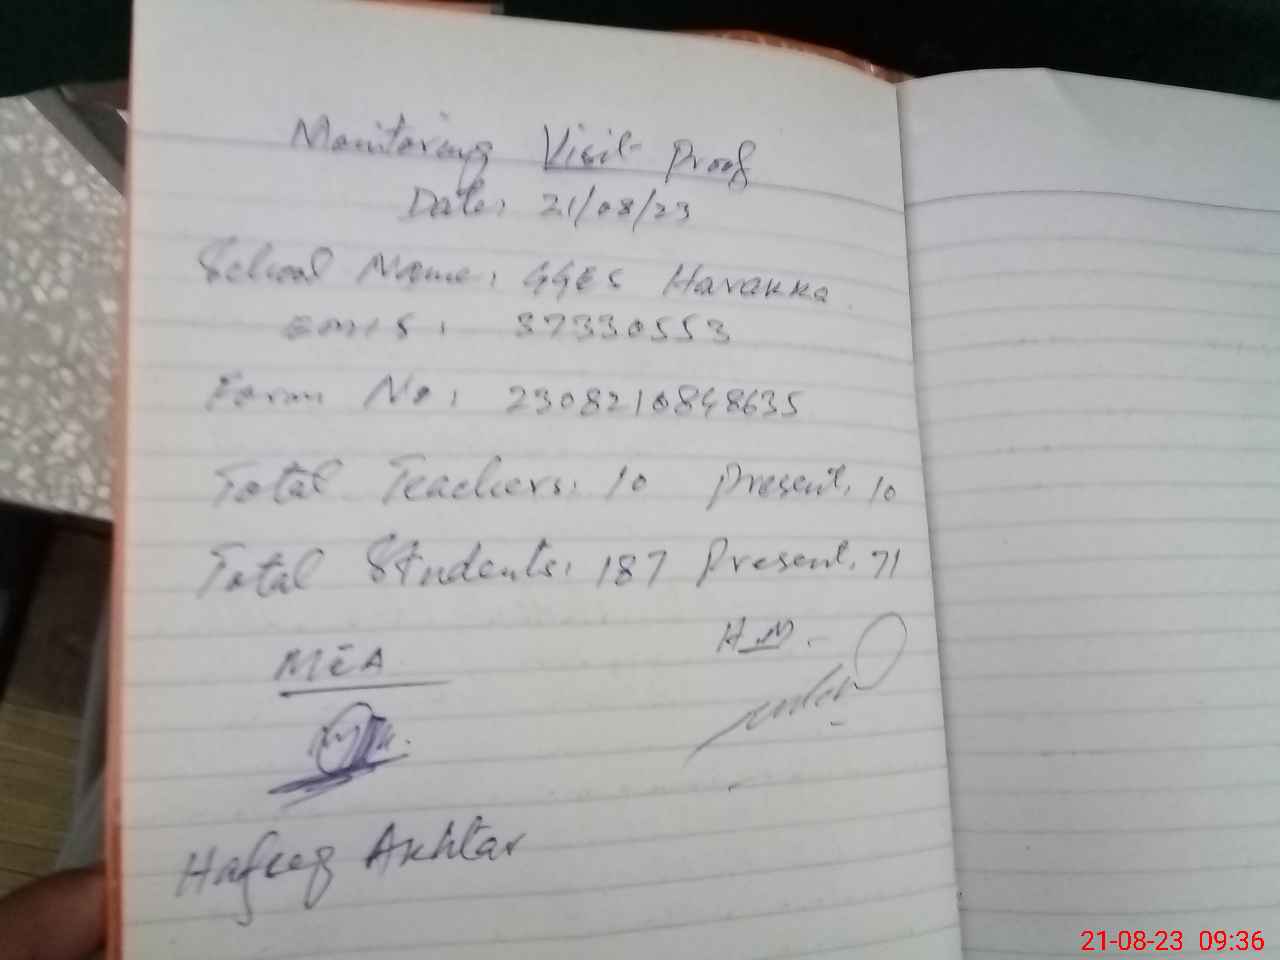 Monitoring Visit Proof
Date: 21/08/23
School Name: GGES Harakka
EMIS: 37330553
Form No: 2308210848635
Total Teachers: 10 Present: 10
Total Students: 187 Present: 71
MEA H.M.
Hafeez Akhtar
21-08-23 09:36